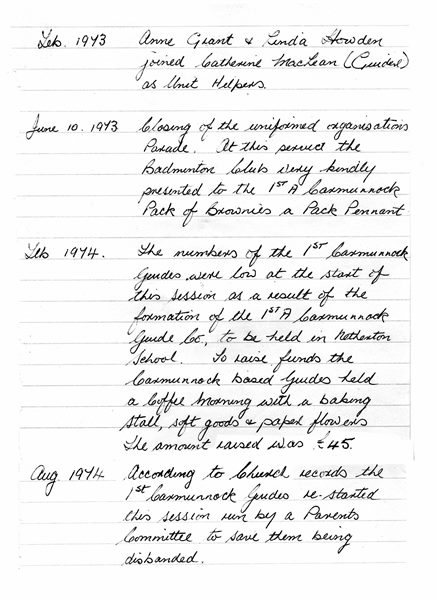 Feb. 1973 Anne Grant & Linda Howden
joined Catherine MacLean (Guider)
as Unit Helpers.
June 10. 1973 Closing of the uniformed organisations
Parade. At this service the
Badminton Club very kindly
presented to the 1ST A Carmunnock
Pack of Brownies a Pack Pennant
Feb 1974. The numbers of the 1ST Carmunnock
Guides were low at the start of
this session as a result of the
formation of the 1ST A Carmunnock
Guide Co, to be held in Netherton
School. To raise funds the
Carmunnock based Guides held
a Coffee Morning with a baking
stall, soft goods & paper flowers
The amount raised was £45.
Aug 1974 According to Church records the
1st Carmunnock Guides re-started
this session run by a Parents
Committee to save them being
disbanded.